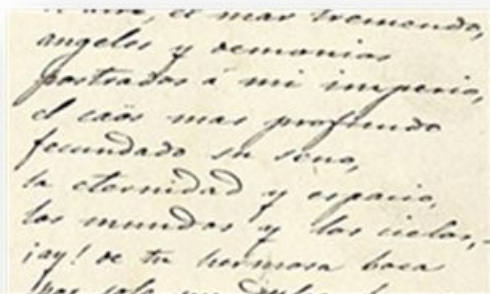 el mar tremendo,
angeles y demonios
postrados á mi imperio,
el caös mas profundo
fecundado en seno,
la eternidad y espacio,
los mundos y los cielos,
¡ay! de tu hermosa boca
por solo un